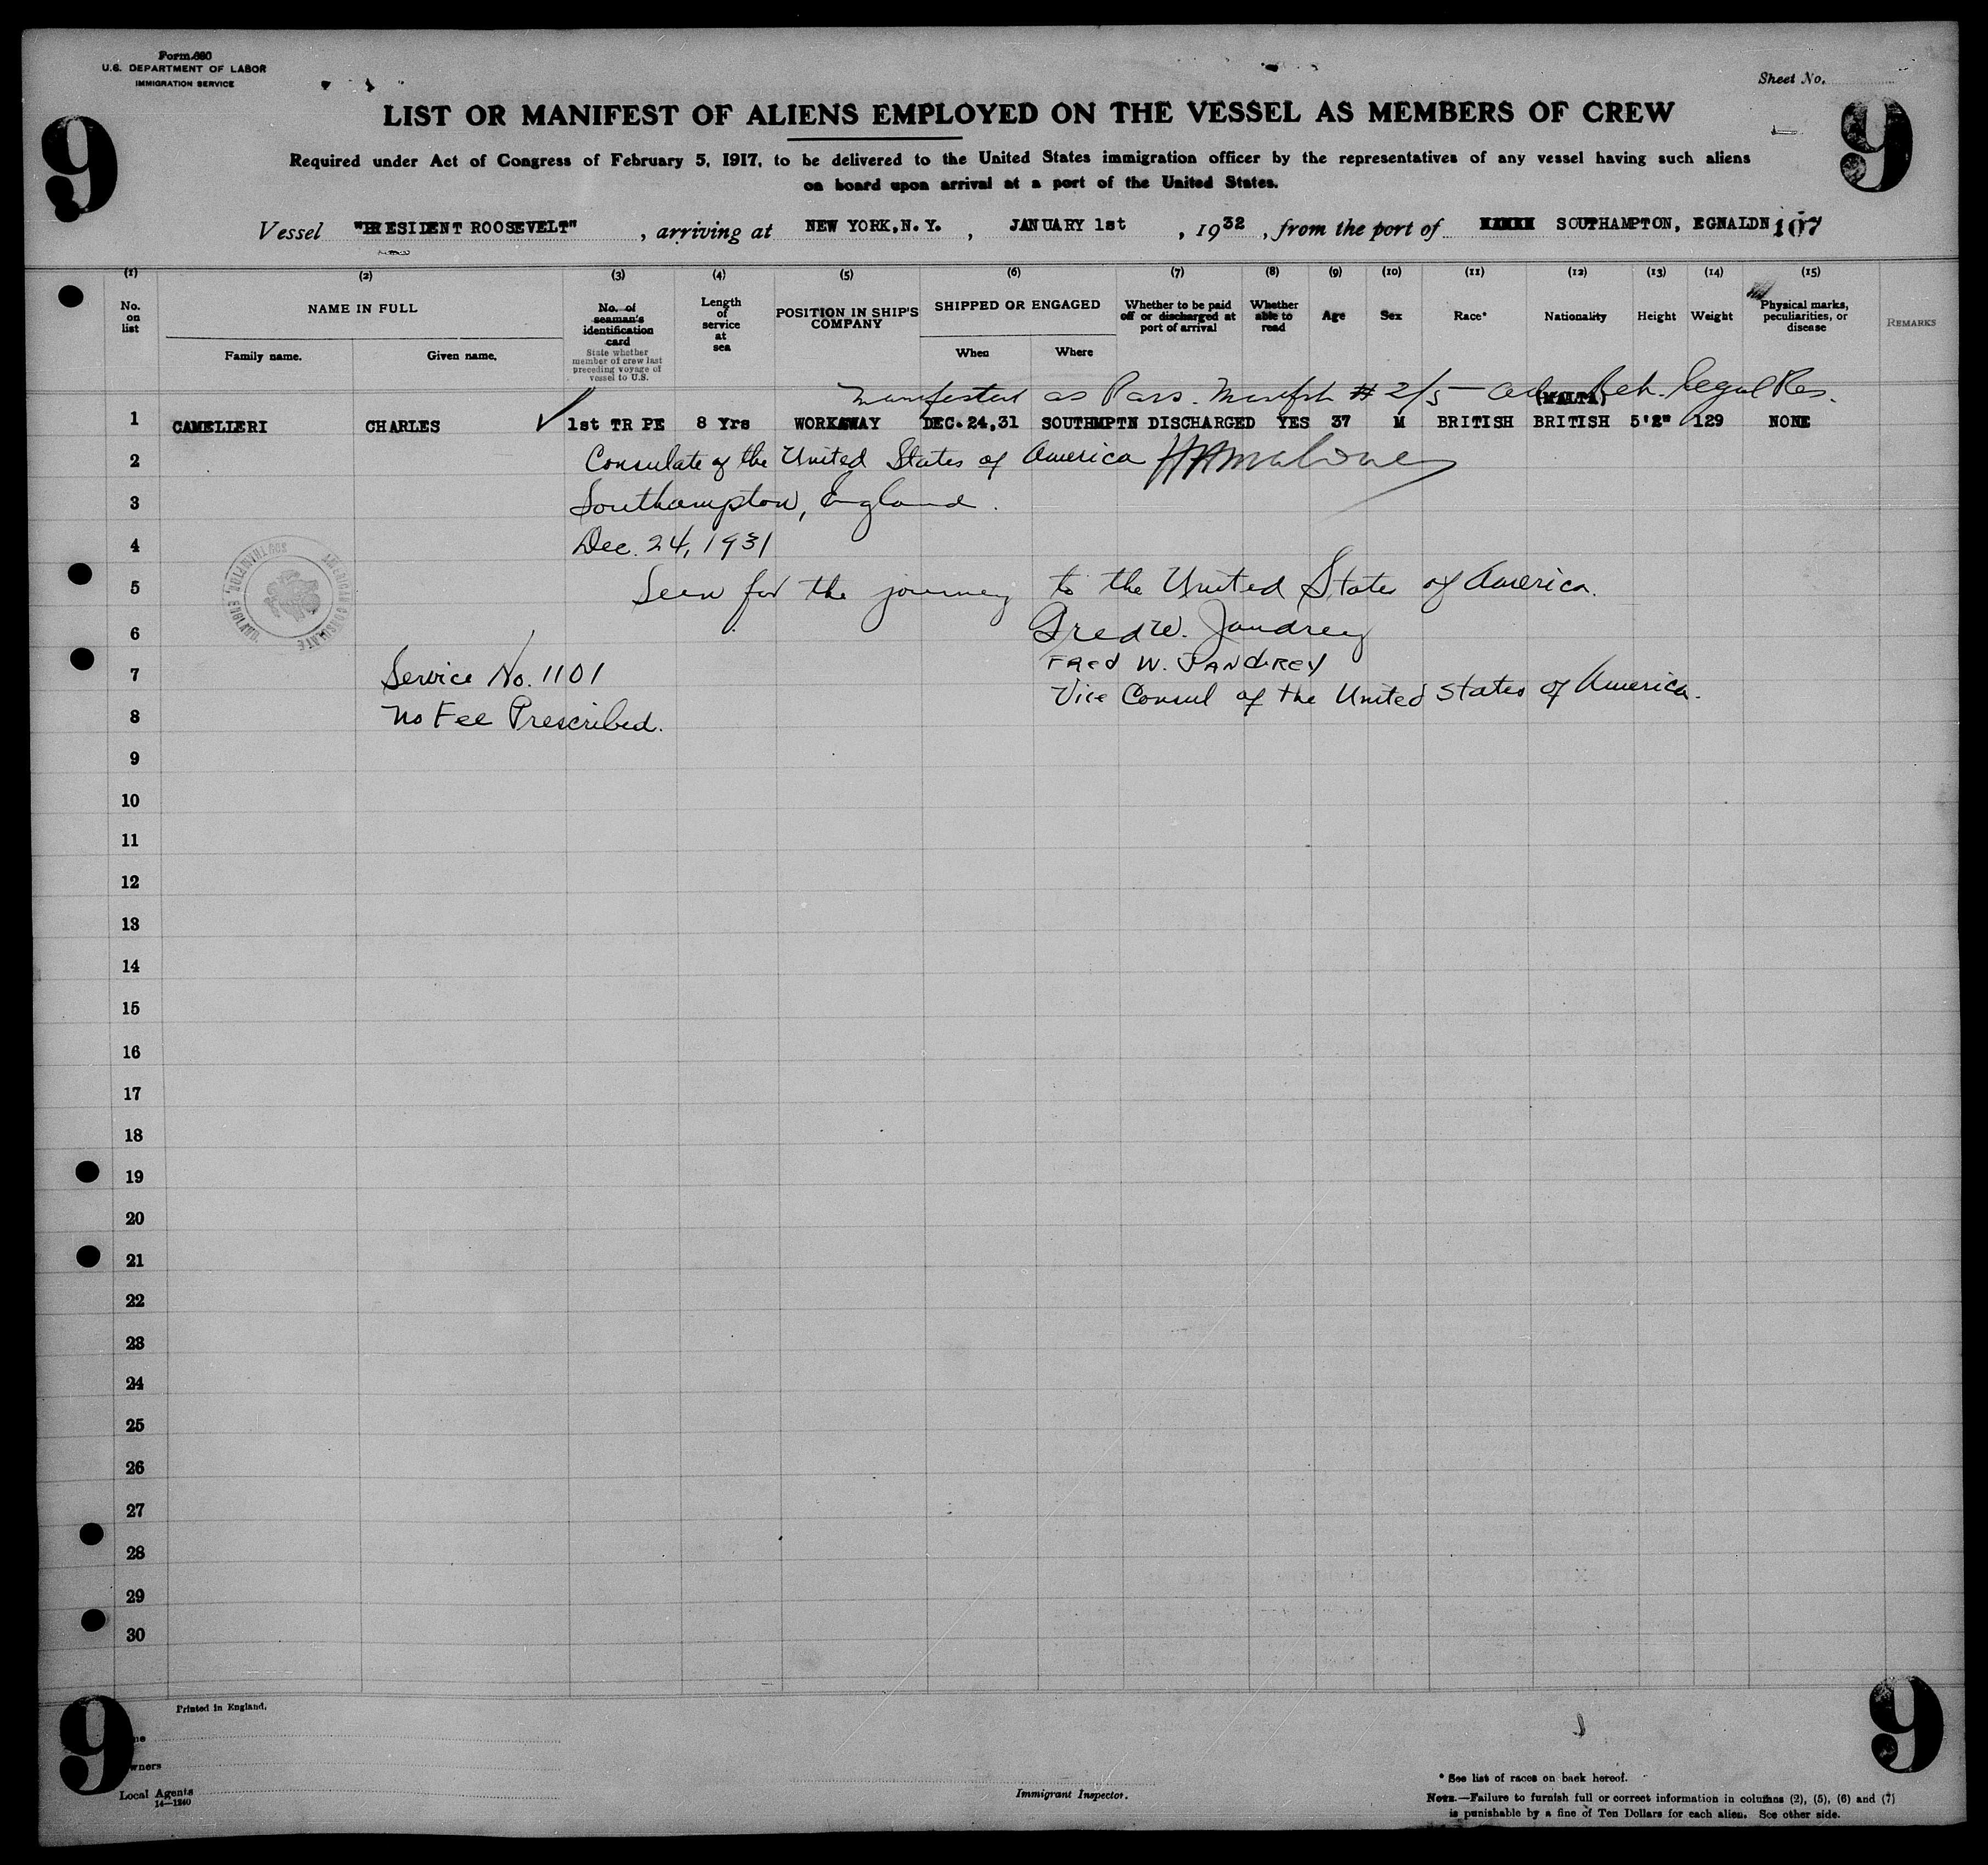 Form 680
U.S. DEPARTMENT OF LABOR
IMMIGRATION SERVICE
Sheet No.
9
9
LIST OR MANIFEST OF ALIENS EMPLOYED ON THE VESSEL AS MEMBERS OF CREW
Required under Act of Congress of February 5, 1917, to be delivered to the United States immigration officer by the representatives of any vessel having such aliens
on board upon arrival at a port of the United States.
Vessel "PRESIDENT ROOSEVELT", arriving at NEW YORK, N. Y., JANUARY 1st, 1932, from the port of SOUTHAMPTON, EGNALDN 107
(1) (2) (3) (4) (5) (6) (7) (8) (9) (10) (11) (12) (13) (14) (15)
No. on list
NAME IN FULL
Family name.
Given name.
No. of seaman's identification card
State whether member of crew last preceding voyage of vessel to U.S.
Length of service at sea
POSITION IN SHIP'S COMPANY
SHIPPED OR ENGAGED
When
Where
Whether to be paid off or discharged at port of arrival
Whether able to read
Age
Sex
Race*
Nationality
Height
Weight
Physical marks, peculiarities, or disease
REMARKS
manifested as Pass. Manifest # 2/5 — Ret. legal Res.
(MALTA)
1 CAMELLERI CHARLES ✓ 1st TR PE 8 Yrs WORKAWAY DEC.24,31 SOUTHMPTN DISCHARGED YES 37 M BRITISH BRITISH 5'2" 129 NONE
2 Consulate of the United States of America
3 Southampton, England.
4 Dec. 24, 1931
AMERICAN CONSULATE SOUTHAMPTON, ENGLAND.
5 Seen for the journey to the United States of America.
6 Fred W. Jandrey
7 Service No. 1101 FREd W. JANdREY
8 No Fee Prescribed. Vice Consul of the United States of America.
9
10
11
12
13
14
15
16
17
18
19
20
21
22
23
24
25
26
27
28
29
30
Printed in England.
9
9
Owners
Local Agents
14—1240
Immigrant Inspector.
* See list of races on back hereof.
NOTE.—Failure to furnish full or correct information in columns (2), (5), (6) and (7)
is punishable by a fine of Ten Dollars for each alien. See other side.